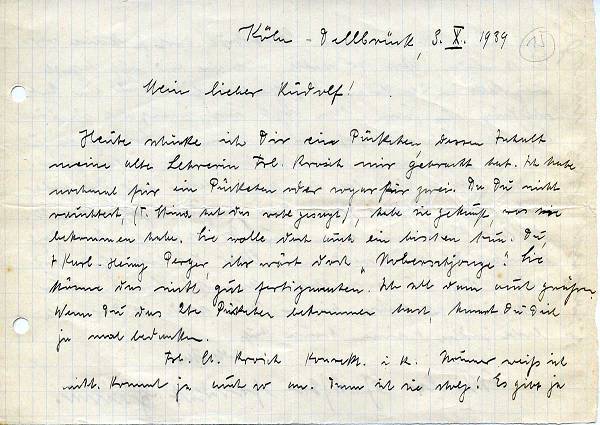 Köln - Dellbrück, 3. X. 1939 15
Mein lieber Rudolf!
Heute schicke ich Dir ein Päckchen, dessen Inhalt
meine alte Lehrerin Frl. Krosch mir gebracht hat. Ich habe
nochmal für ein Päckchen oder sogar für zwei. Da Du nicht
rauchtest, (T. hat das wohl gesagt), habe sie gekauft, was sie
bekommen habe. Sie wolle doch auch ein bischen tun. Du,
+ Karl-Heinz Berger, ihr wärt doch
könne das nicht gut fertigmachen. Ich soll dann auch grüßen.
Wenn Du das 2te Päckchen bekommen hast, kannst Du Dich
ja mal bedanken.
Frl. Krosch i. R., Nummer weiß ich
nicht. Kommt ja auch so an. Dann ist sie stolz! Es gibt ja